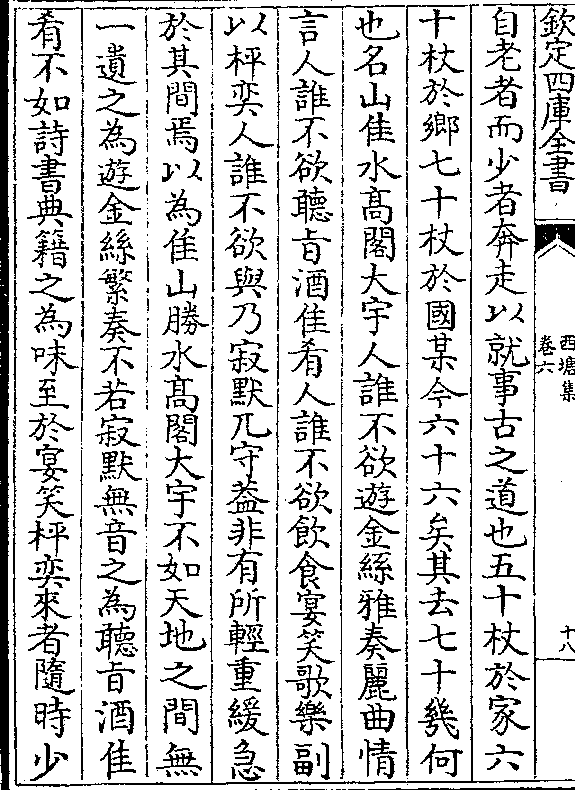 欽定四庫全書
西塘集
卷六
十八
自老者而少者奔走以就事古之道也五十杖於家六
十杖於鄉七十杖於國某今六十六矣其去七十㡬何
也名山佳水髙閣大宇人誰不欲遊金絲雅奏麗曲情
言人誰不欲聽㫖酒佳肴人誰不欲飲食宴笑歌樂副
以枰奕人誰不欲與乃寂默兀守葢非有所輕重緩急
於其間焉以為佳山勝水髙閣大宇不如天地之間無
一遺之為遊金絲繁奏不若寂默無音之為聽㫖酒佳
肴不如詩書典籍之為味至於宴笑枰奕來者隨時少